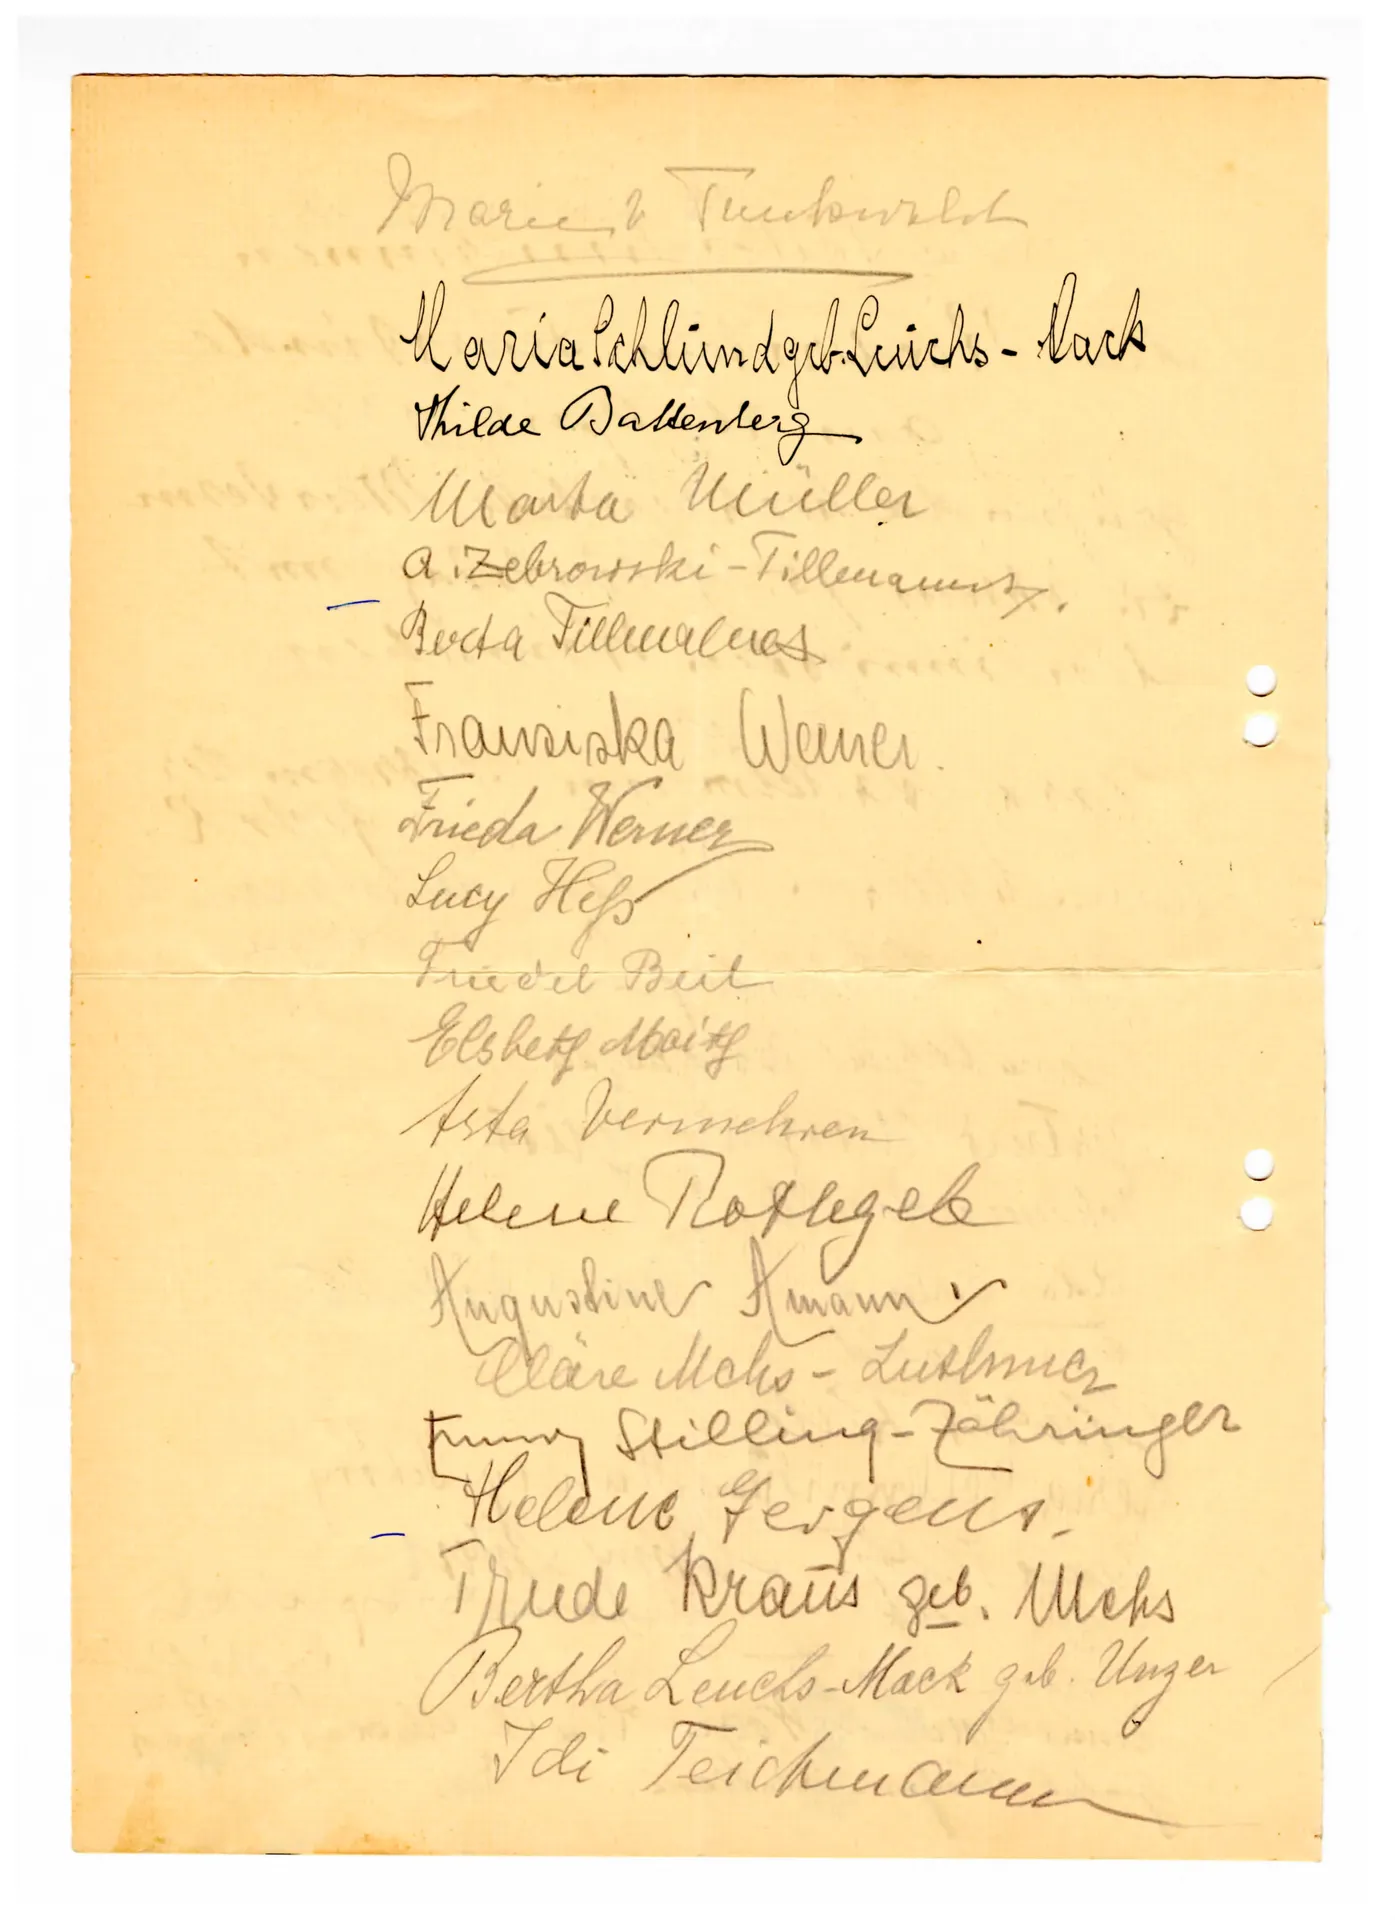 Marie v Tunkwald
Maria Schlünd geb. Leuchs - Mack
Thilde Battenberg
Marta Müller
A. Zebrowski - Tillmanns.
Berta Tillmanns
Franziska Werner.
Frieda Werner
Lucy Heß
Friedel Beil
Elsbeth Moitz
Asta Vermehren
Helene Rothgeb
Augustine Amann
Cläre Mchs - Luthmer
Emmy Stilling - Zähringer
Helene Gergens.
Trude Kraus geb. Mchs
Bertha Leuchs - Mack geb. Unger
Idi Teichmann